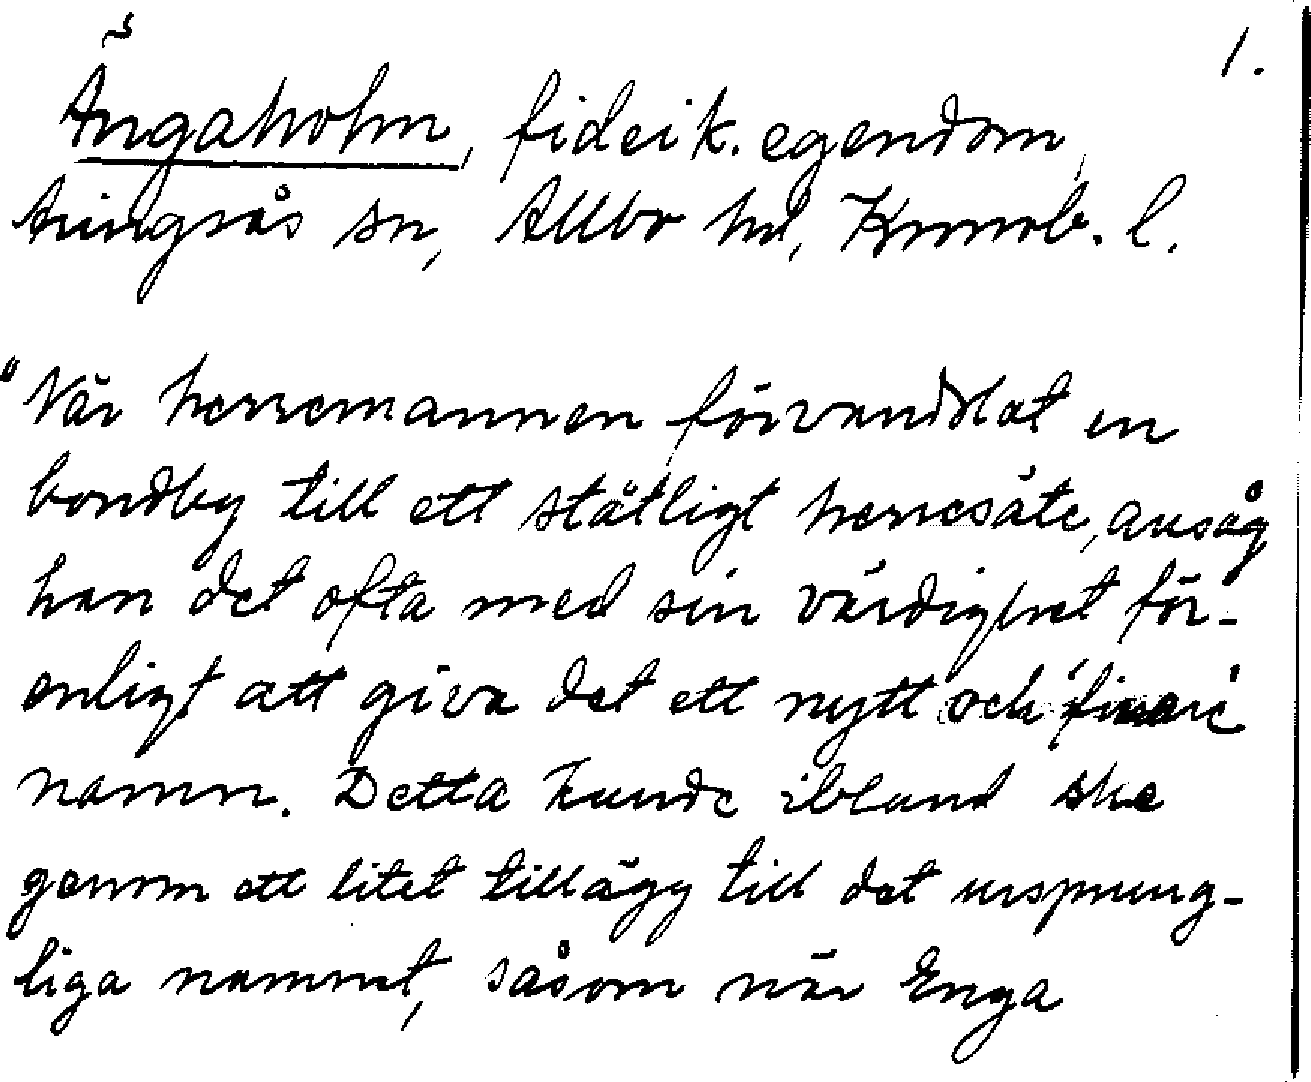 1.
Ängaholm, fideik. egendom,
Aringsås sn, Allbo hd, Kronob. l.
"När herremannen förvandlat en
bondby till ett ståtligt herresäte, ansåg
han det ofta med sin värdighet för-
enligt att giva det ett nytt och 'finare'
namn. Detta kunde ibland ske
genom ett litet tillägg till det ursprung-
liga namnet, såsom när Enga